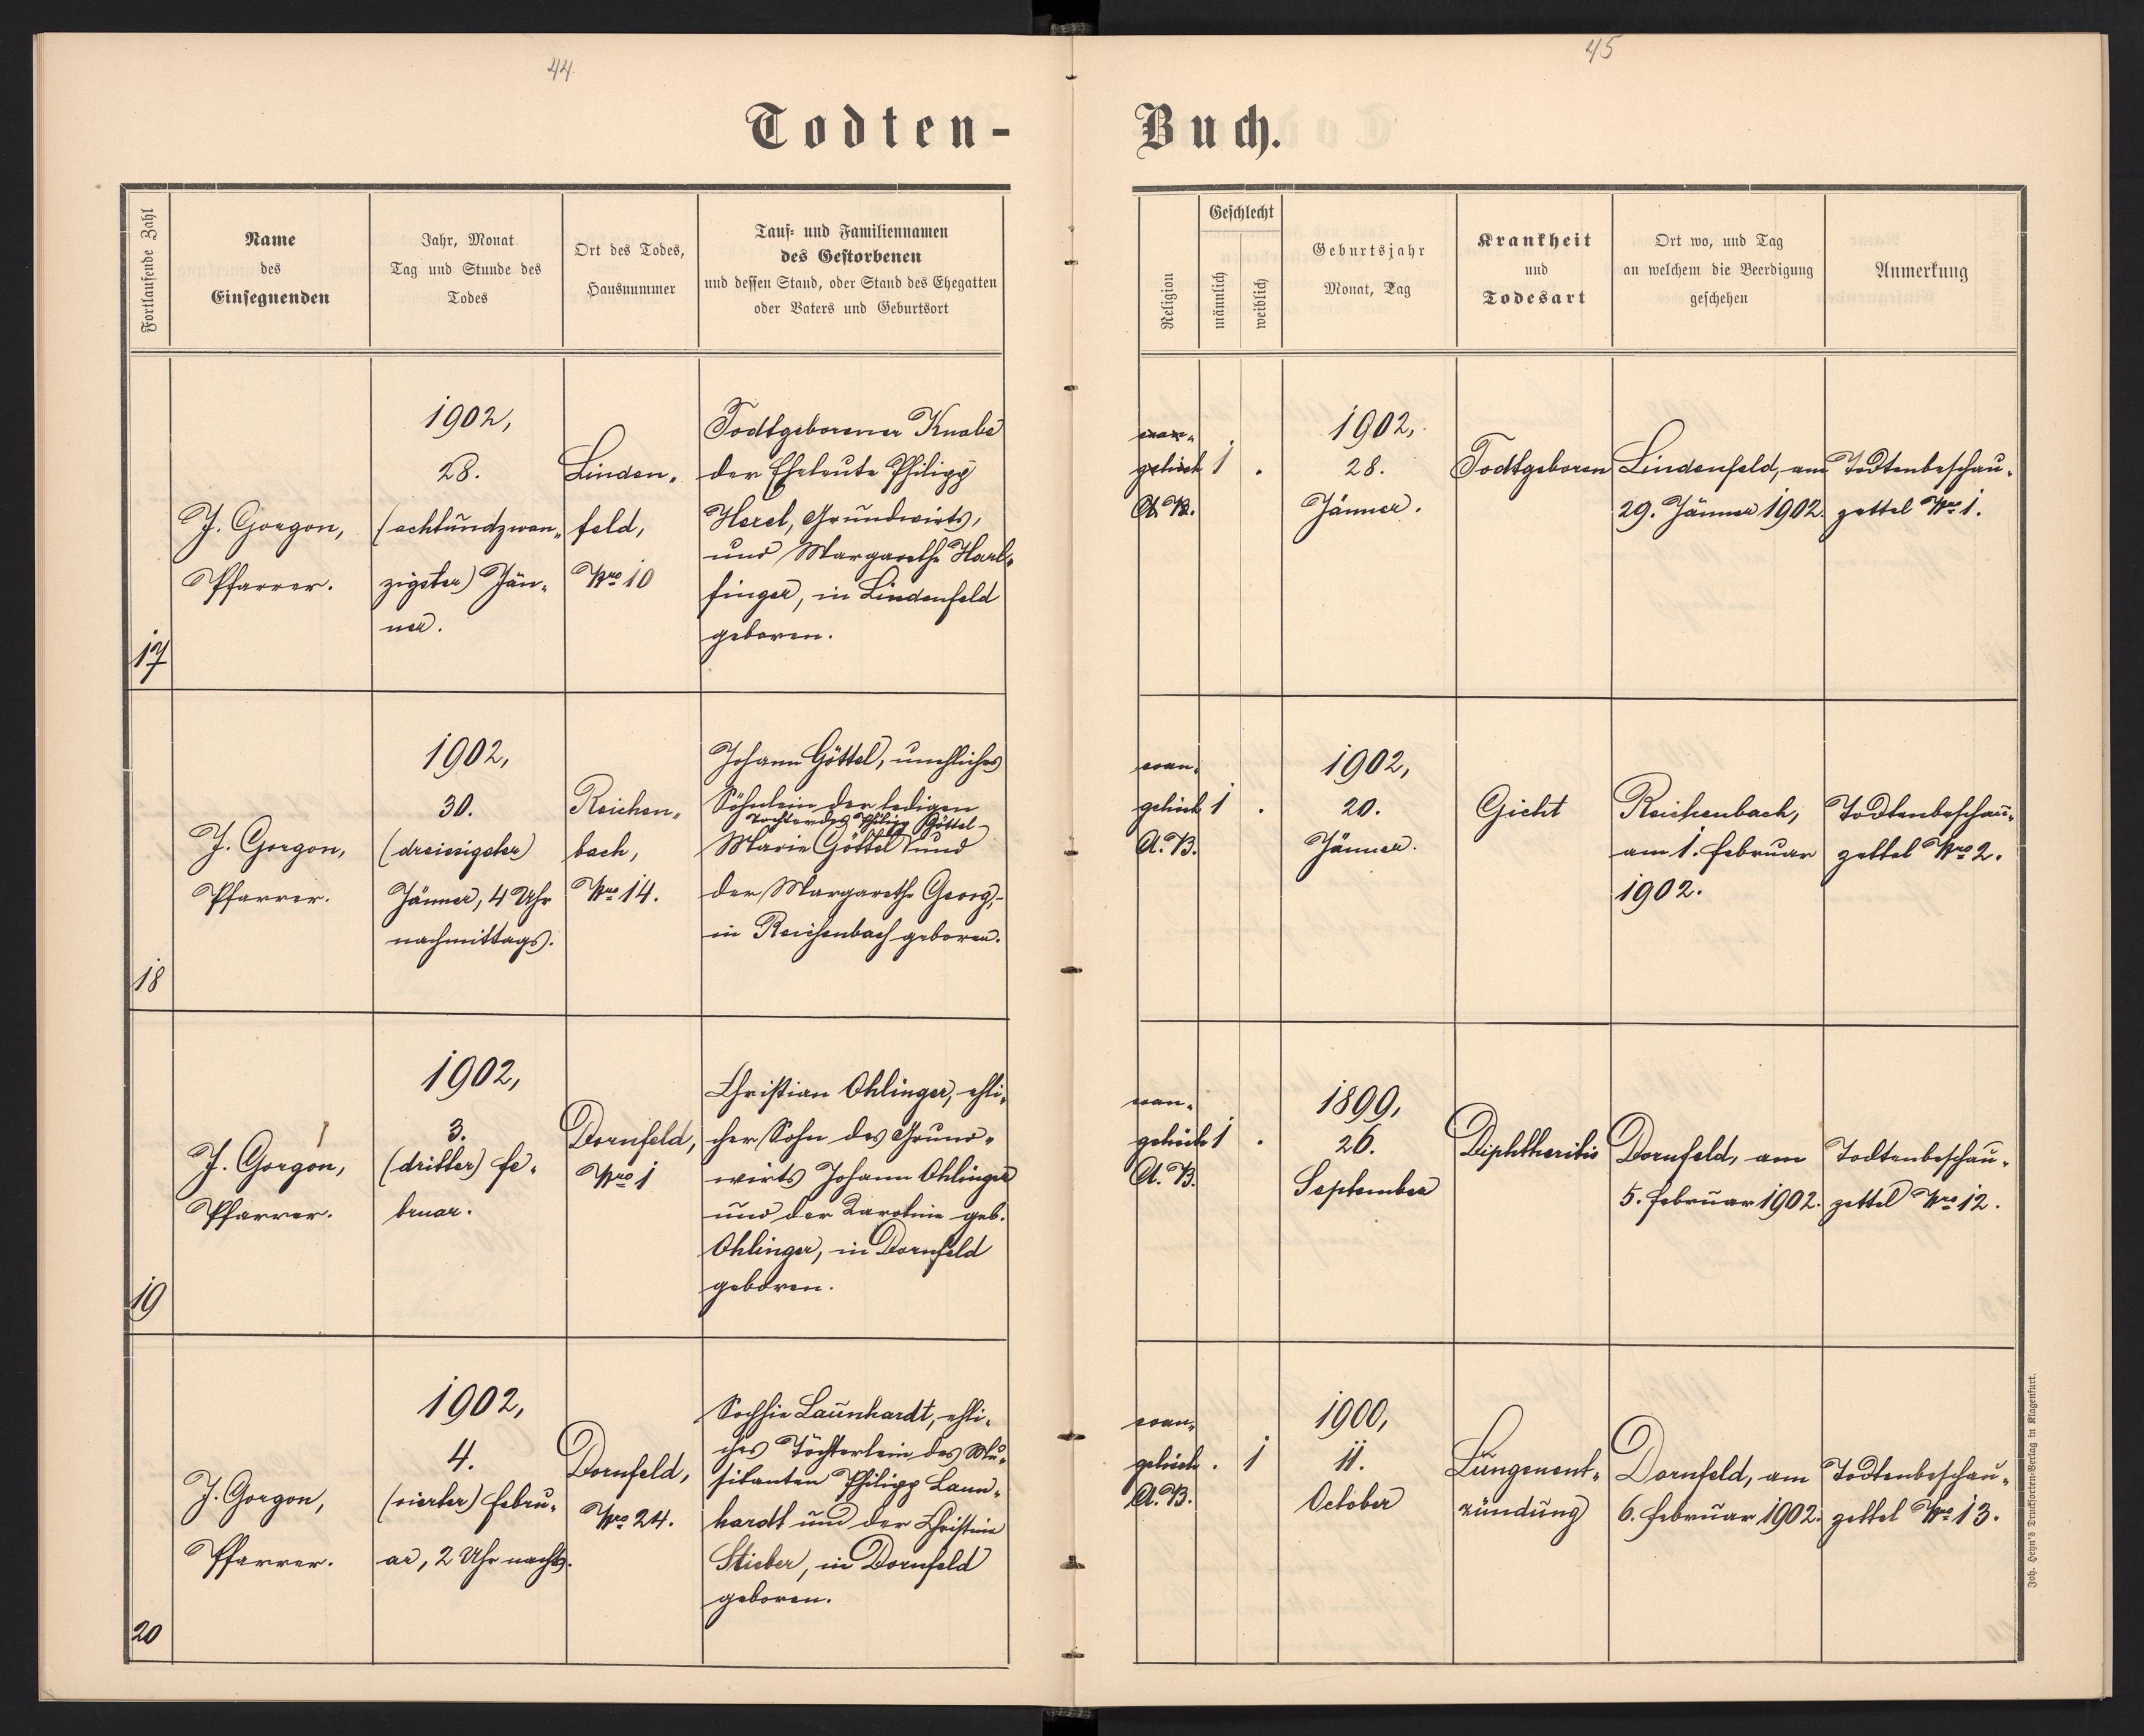 44
45
Todten-
Buch.
Fortlaufende Zahl
Name
des
Einsegnenden
Jahr, Monat
Tag und Stunde des
Todes
Ort des Todes,
Hausnummer
Tauf- und Familiennamen
des Gestorbenen
und dessen Stand, oder Stand des Ehegatten
oder Vaters und Geburtsort
Religion
Geschlecht
männlich
weiblich
Geburtsjahr
Monat, Tag
Krankheit
und
Todesart
Ort wo, und Tag
an welchem die Beerdigung
geschehen
Anmerkung
17
J. Gorgon,
Pfarrer.
1902,
28.
(achtundzwan-
zigster) Jän-
ner.
Linden-
feld,
Nro 10
Todtgeborener Knabe
der Eheleute Philipp
Herel, Grundwirts,
und Margarethe Harl-
finger, in Lindenfeld
geboren.
evan-
gelisch
A. B.
1 .
1902,
28.
Jänner.
Todtgeboren
Lindenfeld, am
29. Jänner 1902.
Todtenbeschau-
zettel Nro 1.
18
J. Gorgon,
Pfarrer.
1902,
30.
(dreissigster)
Jänner, 4 Uhr
nachmittags.
Reichen-
bach,
Nro 14.
Johann Göttel, unehliches
Söhnlein der ledigen
Tochter des Philipp Göttel
Marie Göttel und
der Margarethe Georg,
in Reichenbach geboren.
evan-
gelisch
A. B.
1 .
1902,
20.
Jänner.
Gicht
Reichenbach,
am 1. Februar
1902.
Todtenbeschau-
zettel Nro 2.
19
J. Gorgon,
Pfarrer.
1902,
3.
(dritter) Fe-
bruar.
Dornfeld,
Nro 1
Christian Ohlinger, ehli-
cher Sohn des Grund-
wirts Johann Ohlinger
und der Karoline geb.
Ohlinger, in Dornfeld
geboren.
evan-
gelisch
A. B.
1 .
1899,
26.
September
Diphtheritis
Dornfeld, am
5. Februar 1902.
Todtenbeschau-
zettel Nro 12.
20
J. Gorgon,
Pfarrer.
1902,
4.
(vierter) Febru-
ar, 2 Uhr nachts.
Dornfeld,
Nro 24.
Sophie Launhardt, ehli-
ches Töchterlein des Mu-
sikanten Philipp Laun-
hardt und der Christine
Stieber, in Dornfeld
geboren.
evan-
gelisch
A. B.
. 1
1900,
11.
October
Lungenent-
zündung
Dornfeld, am
6. Februar 1902.
Todtenbeschau-
zettel Nro 13.
Joh. Heyn's Drucksorten-Verlag in Klagenfurt.